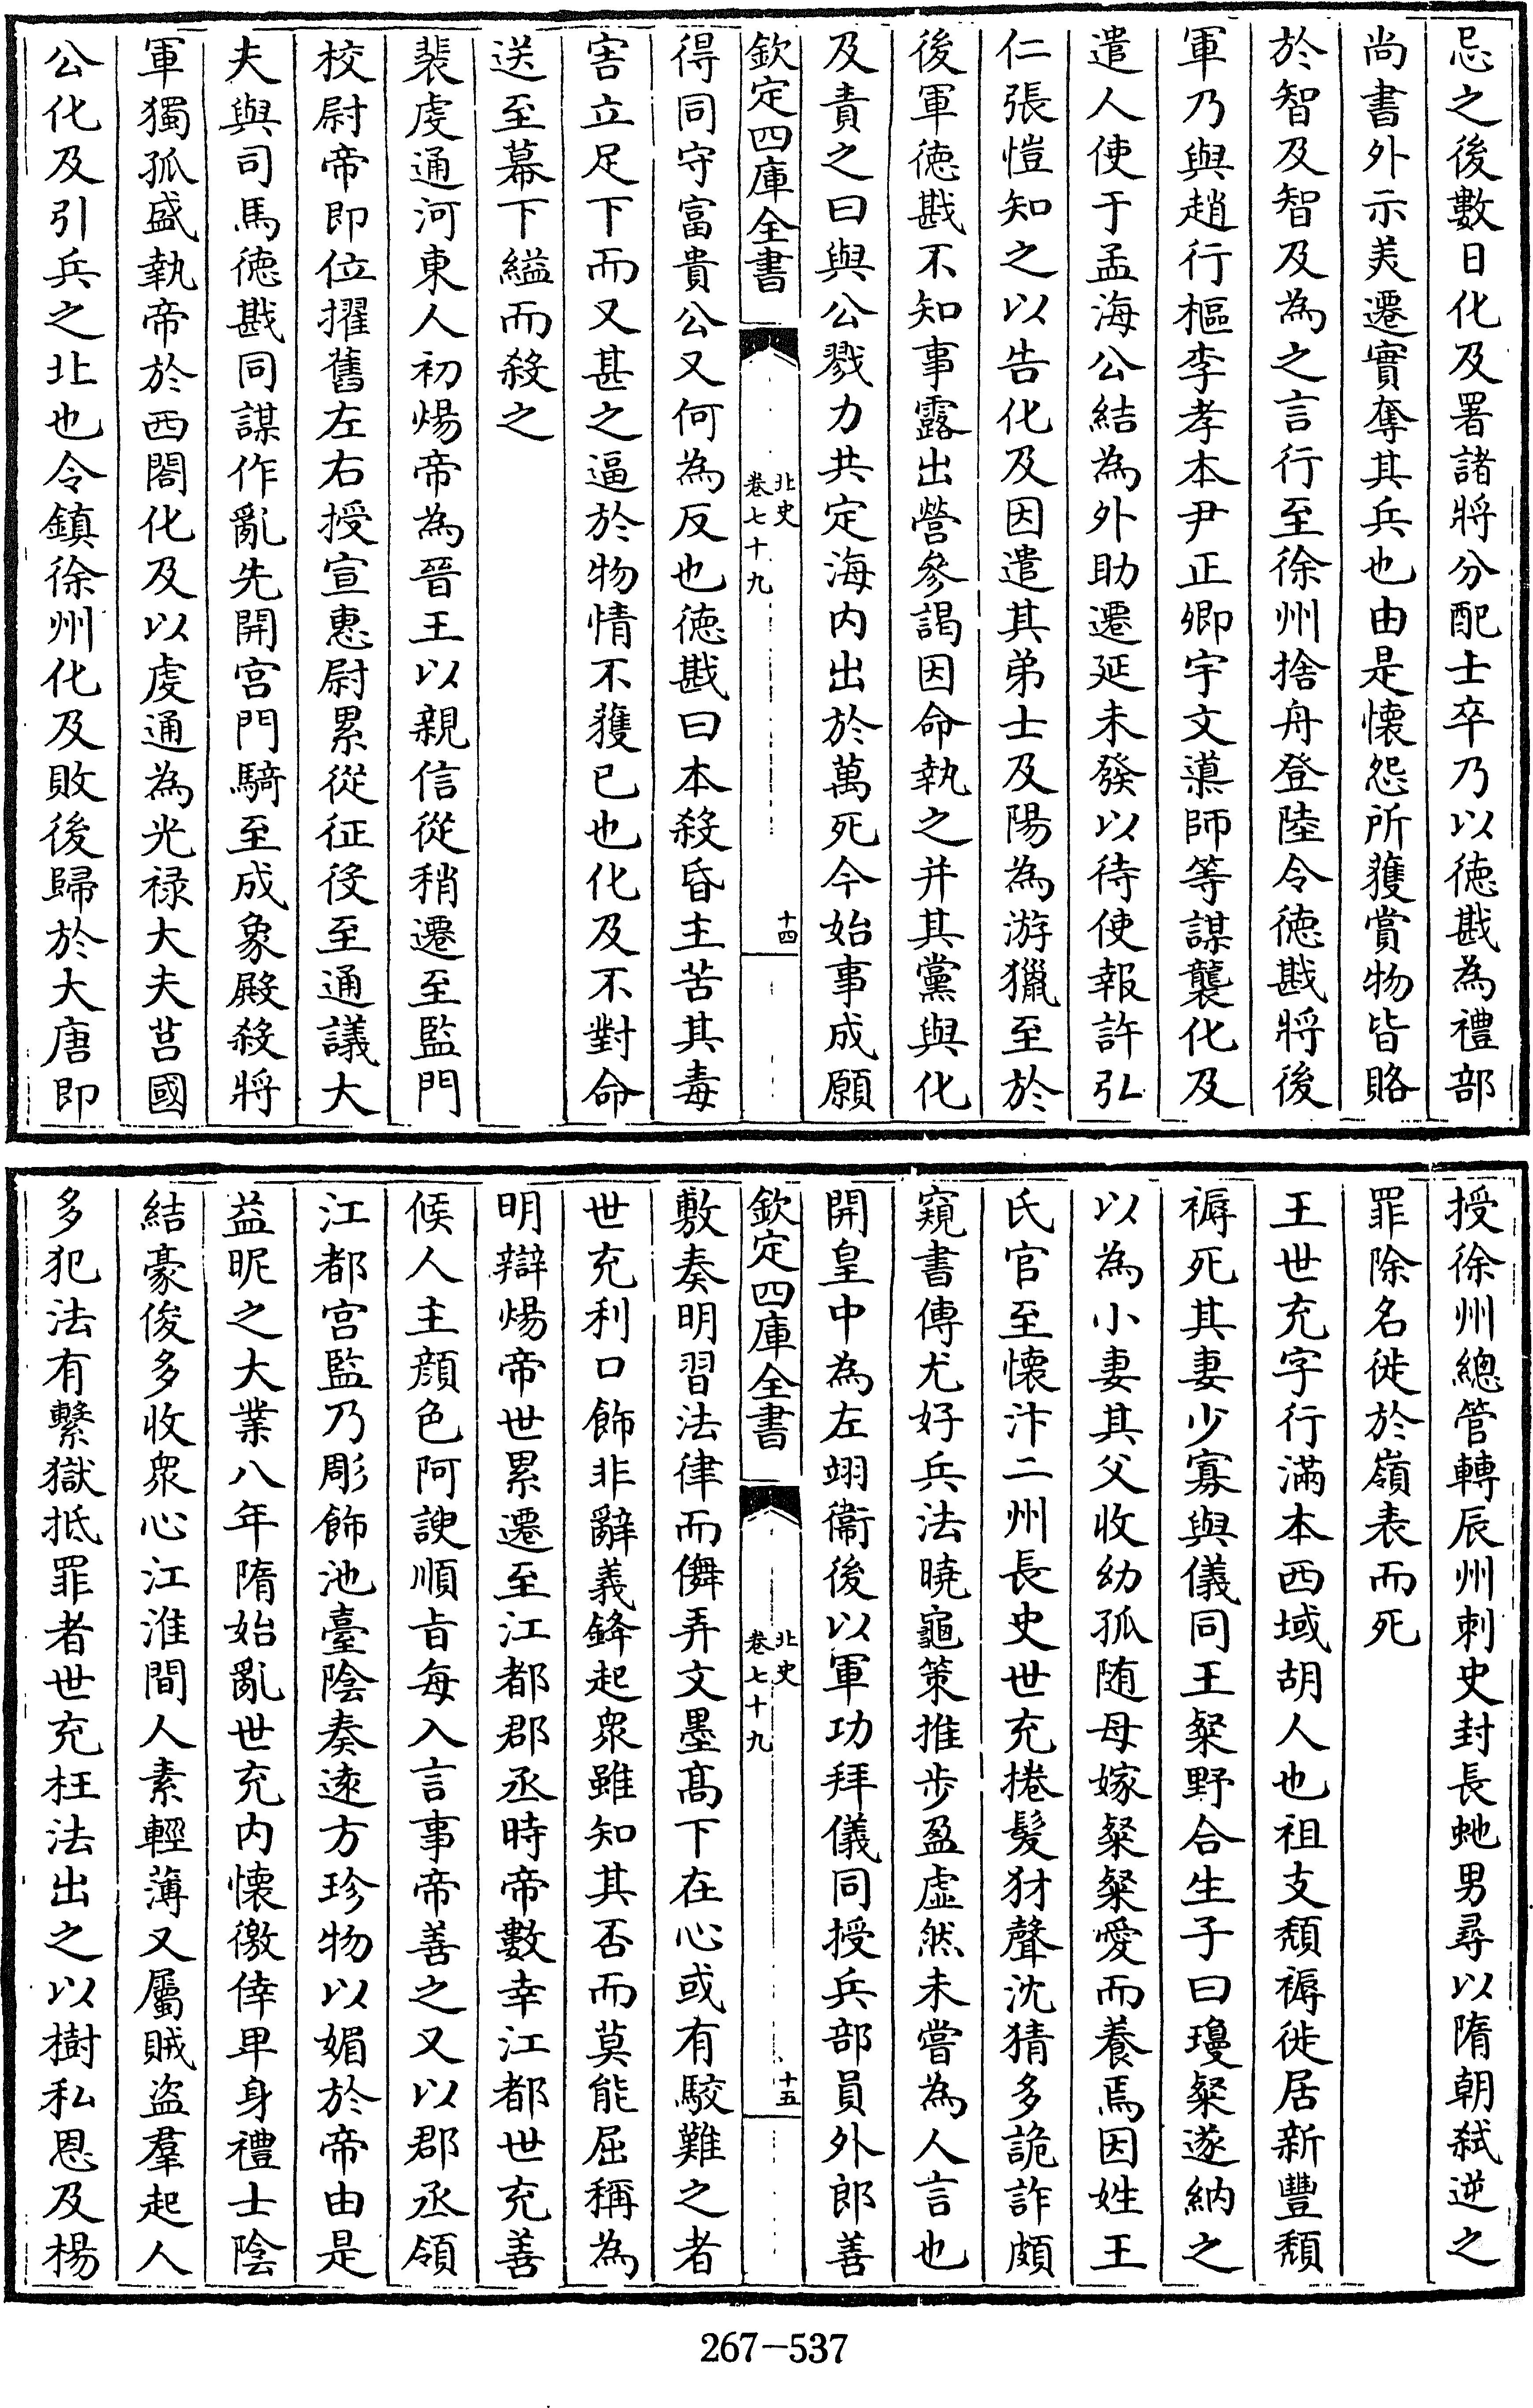 忌之後數日化及署諸將分配士卒乃以徳戡為禮部
尚書外示美遷實奪其兵也由是懐怨所獲賞物皆賂
於智及智及為之言行至徐州捨舟登陸令徳戡將後
軍乃與趙行樞李孝本尹正卿宇文導師等謀襲化及
遣人使于孟海公結為外助遷延未發以待使報許弘
仁張愷知之以告化及因遣其弟士及陽為游獵至於
後軍徳戡不知事露出營參謁因命執之并其黨與化
及責之曰與公戮力共定海内出於萬死今始事成願
欽定四庫全書
北史
卷七十九
十四
得同守富貴公又何為反也徳戡曰本殺昏主苦其毒
害立足下而又甚之逼於物情不獲已也化及不對命
送至幕下縊而殺之
裴虔通河東人初煬帝為晉王以親信從稍遷至監門
校尉帝即位擢舊左右授宣惠尉累從征役至通議大
夫與司馬徳戡同謀作亂先開宫門騎至成象殿殺將
軍獨孤盛執帝於西閤化及以虔通為光禄大夫莒國
公化及引兵之北也令鎮徐州化及敗後歸於大唐即
授徐州總管轉辰州刺史封長虵男尋以隋朝弑逆之
罪除名徙於嶺表而死
王世充字行滿本西域胡人也祖支頽褥徙居新豐頽
褥死其妻少寡與儀同王粲野合生子曰瓊粲遂納之
以為小妻其父收幼孤随母嫁粲粲愛而養焉因姓王
氏官至懐汴二州長史世充捲髮豺聲沈猜多詭詐頗
窺書傳尤好兵法曉龜策推步盈虚然未嘗為人言也
開皇中為左翊衞後以軍功拜儀同授兵部員外郎善
欽定四庫全書
北史
卷七十九
十五
敷奏明習法律而儛弄文墨髙下在心或有駮難之者
世充利口飾非辭義鋒起衆雖知其否而莫能屈稱為
明辯煬帝世累遷至江都郡丞時帝數幸江都世充善
候人主顔色阿諛順㫖每入言事帝善之又以郡丞領
江都宫監乃彫飾池臺陰奏逺方珍物以媚於帝由是
益昵之大業八年隋始亂世充内懐徼倖卑身禮士陰
結豪俊多收衆心江淮間人素輕薄又屬賊盗羣起人
多犯法有繫獄抵罪者世充枉法出之以樹私恩及楊
267-537